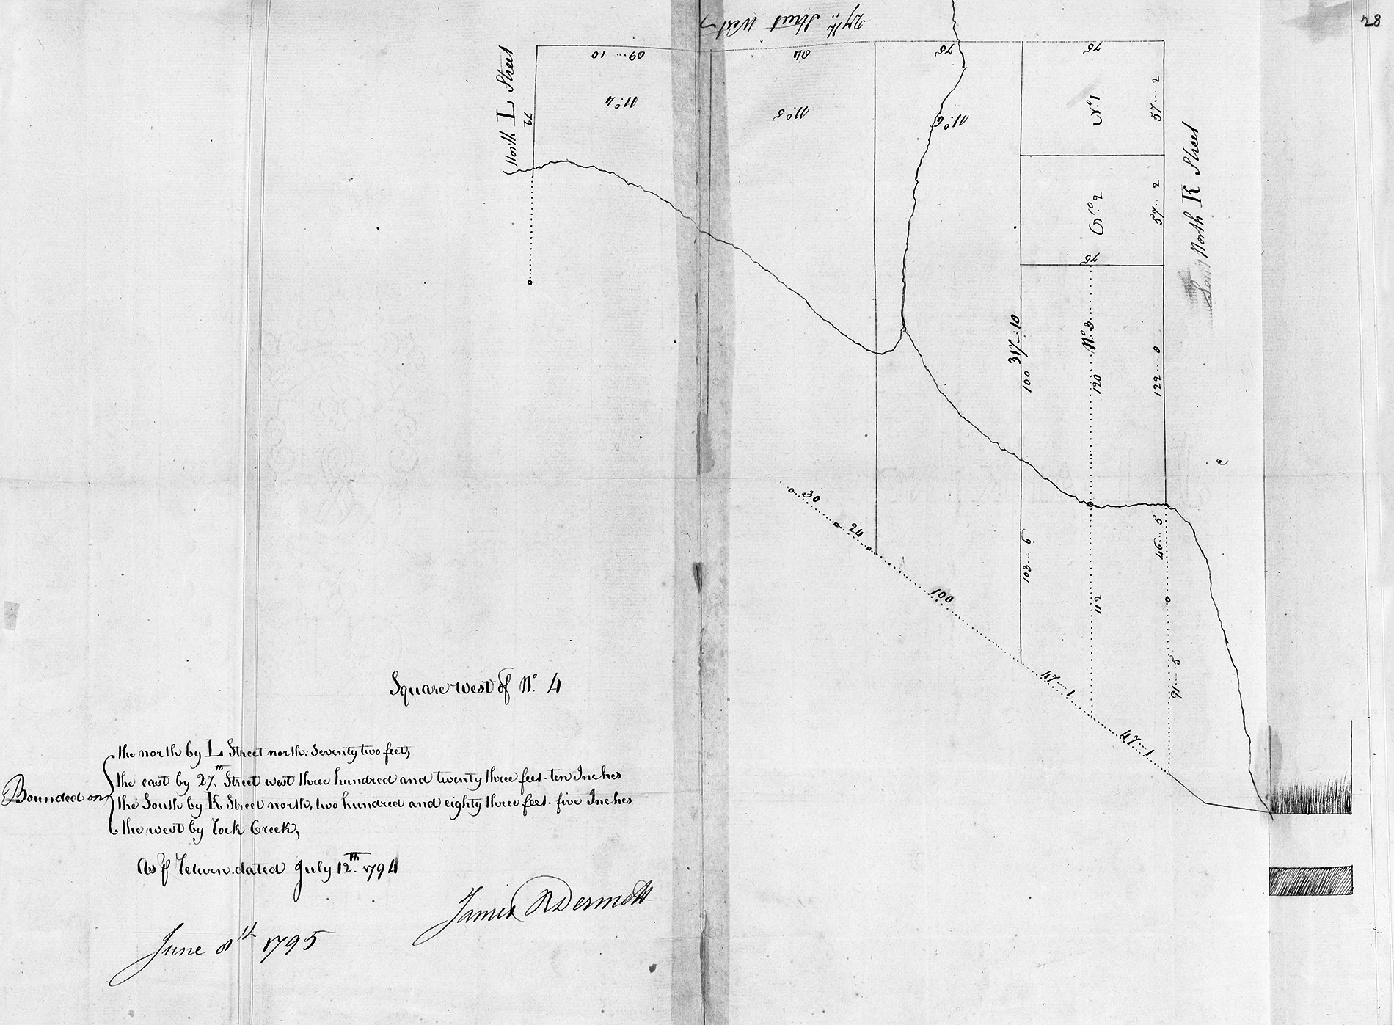 28
27th Street West
North L Street
72
89...10
84
75
75
No. 4
No. 5
No. 6
No. 1
57...2
No. 2
57...2
75
North K Street
317...10
100
No. 3
120
122...0
30
24
100
103...6
112
46...5
91...3
47...1
47...1
Square west of No. 4
Bounded on
the north by L Street north, Seventy two feet,
the east by 27th Street west three hundred and twenty three feet ten Inches
the South by K Street north, two hundred and eighty three feet five Inches
the west by Rock Creek,
As p Return dated July 12th 1794
James R Dermott
June 8th 1795